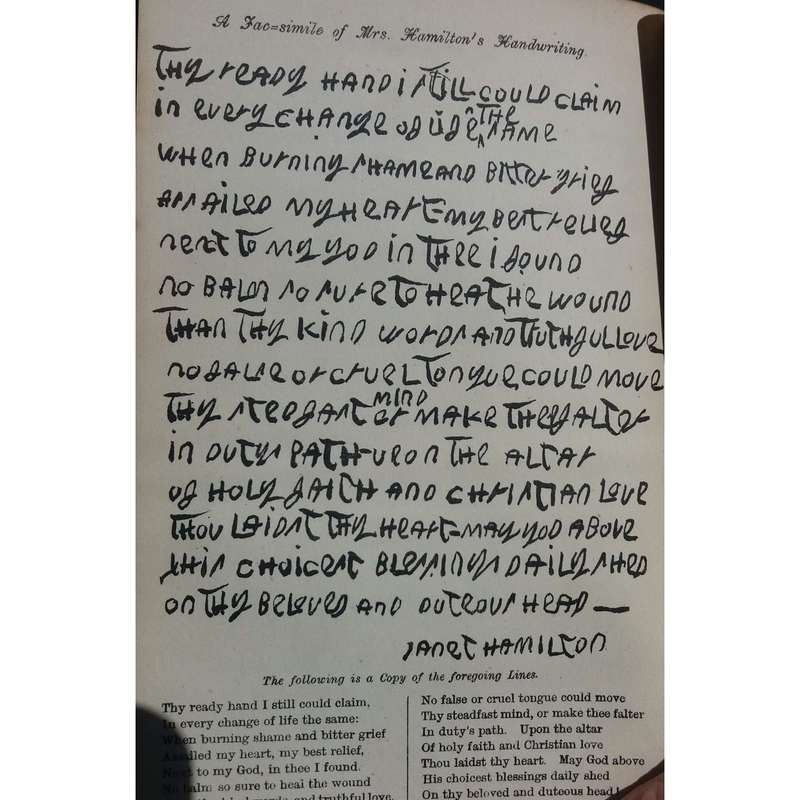 A Fac=simile of Mrs. Hamilton's Handwriting.
Thy ready hand i still could claim
in every change of life the same
when burning shame and bitter grief
assailed my heart-my best relief
next to my god in thee i found
no balm so sure to heal the wound
than thy kind words and truthful love
no false or cruel tongue could move
thy stedfast mind or make thee falter
in dutys path-upon the altar
of holy faith and christian love
thou laidst thy heart-may god above
his choicest blessings daily shed
on thy beloved and duteous head —
janet hamilton
The following is a Copy of the foregoing Lines.
Thy ready hand I still could claim,
In every change of life the same:
When burning shame and bitter grief
Assailed my heart, my best relief,
Next to my God, in thee I found.
No balm so sure to heal the wound
words and truthful love,
No false or cruel tongue could move
Thy steadfast mind, or make thee falter
In duty's path. Upon the altar
Of holy faith and Christian love
Thou laidst thy heart. May God above
His choicest blessings daily shed
On thy beloved and duteous head!